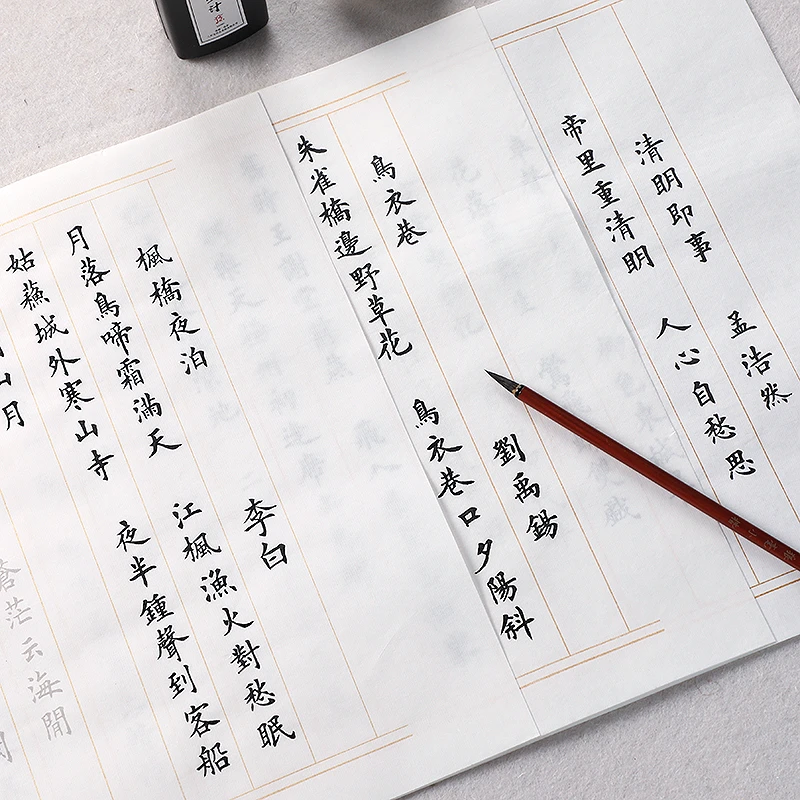 清明即事 孟浩然
帝里重清明 人心自愁思
鳥衣巷 劉禹錫
朱雀橋邊野草花 鳥衣巷口夕陽斜
楓橋夜泊 李白
月落鳥啼霜滿天 江楓漁火對愁眠
姑蘇城外寒山寺 夜半鐘聲到客船
山月
蒼茫云海間
汁